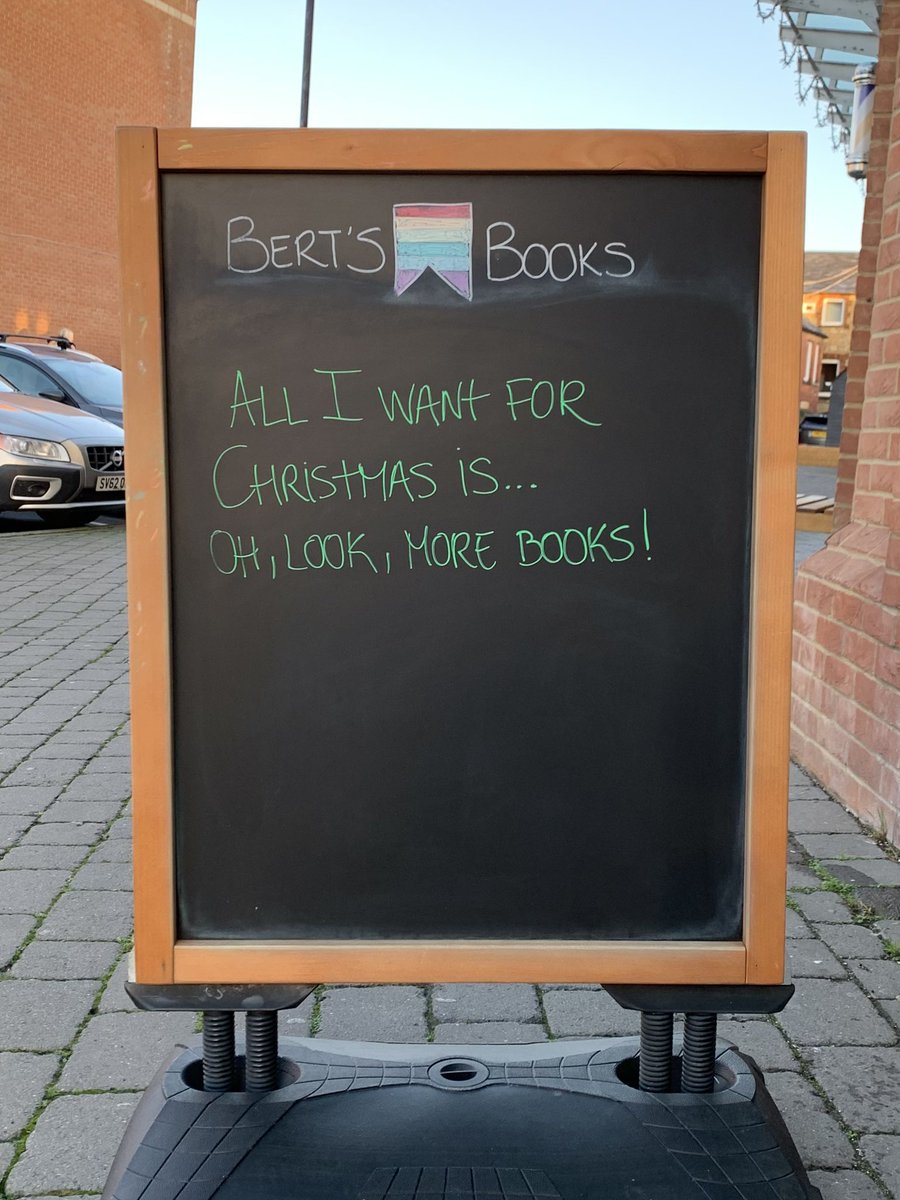 BERT'S BOOKS
ALL I WANT FOR
CHRISTMAS IS...
OH, LOOK, MORE BOOKS!